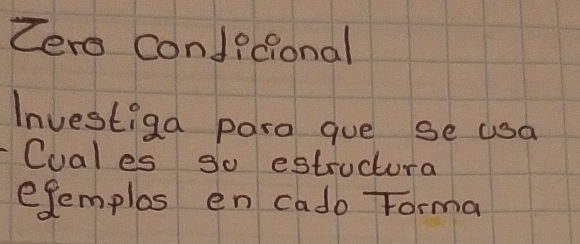 Zero condicional
Investiga para que se usa
- Cual es su estructura
efemplos en cado Forma